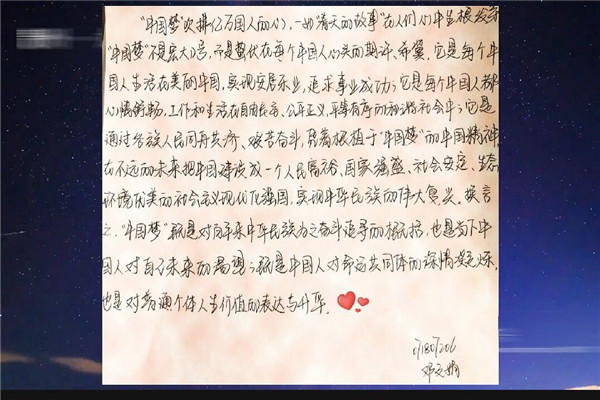 "中国梦"吹拂亿万国人的心,一如"春天的故事"在人们心中生根发芽
"中国梦"不是宏大口号,而是蛰伏在每个中国人心头的期许、希冀。它是每个中
国人生活在美丽中国,实现安居乐业,追求事业成功;它是每个中国人都
心情舒畅,工作和生活在自由民主、公平正义、平等有序的和谐社会中;它是
通过各族人民同舟共济、艰苦奋斗,凭着根植于"中国梦"的中国精神,
在不远的未来把中国建设成一个人民富裕、国家强盛、社会安定、生态
环境优美的社会主义现代化强国,实现中华民族的伟大复兴。换言
之,"中国梦"既是对百年来中华民族为之奋斗追寻的概括,也是当下中
国人对自己未来的渴望;既是中国人对命运共同体的深情凝练,
也是对普通个体人生价值的表达与升华。
邓文娟